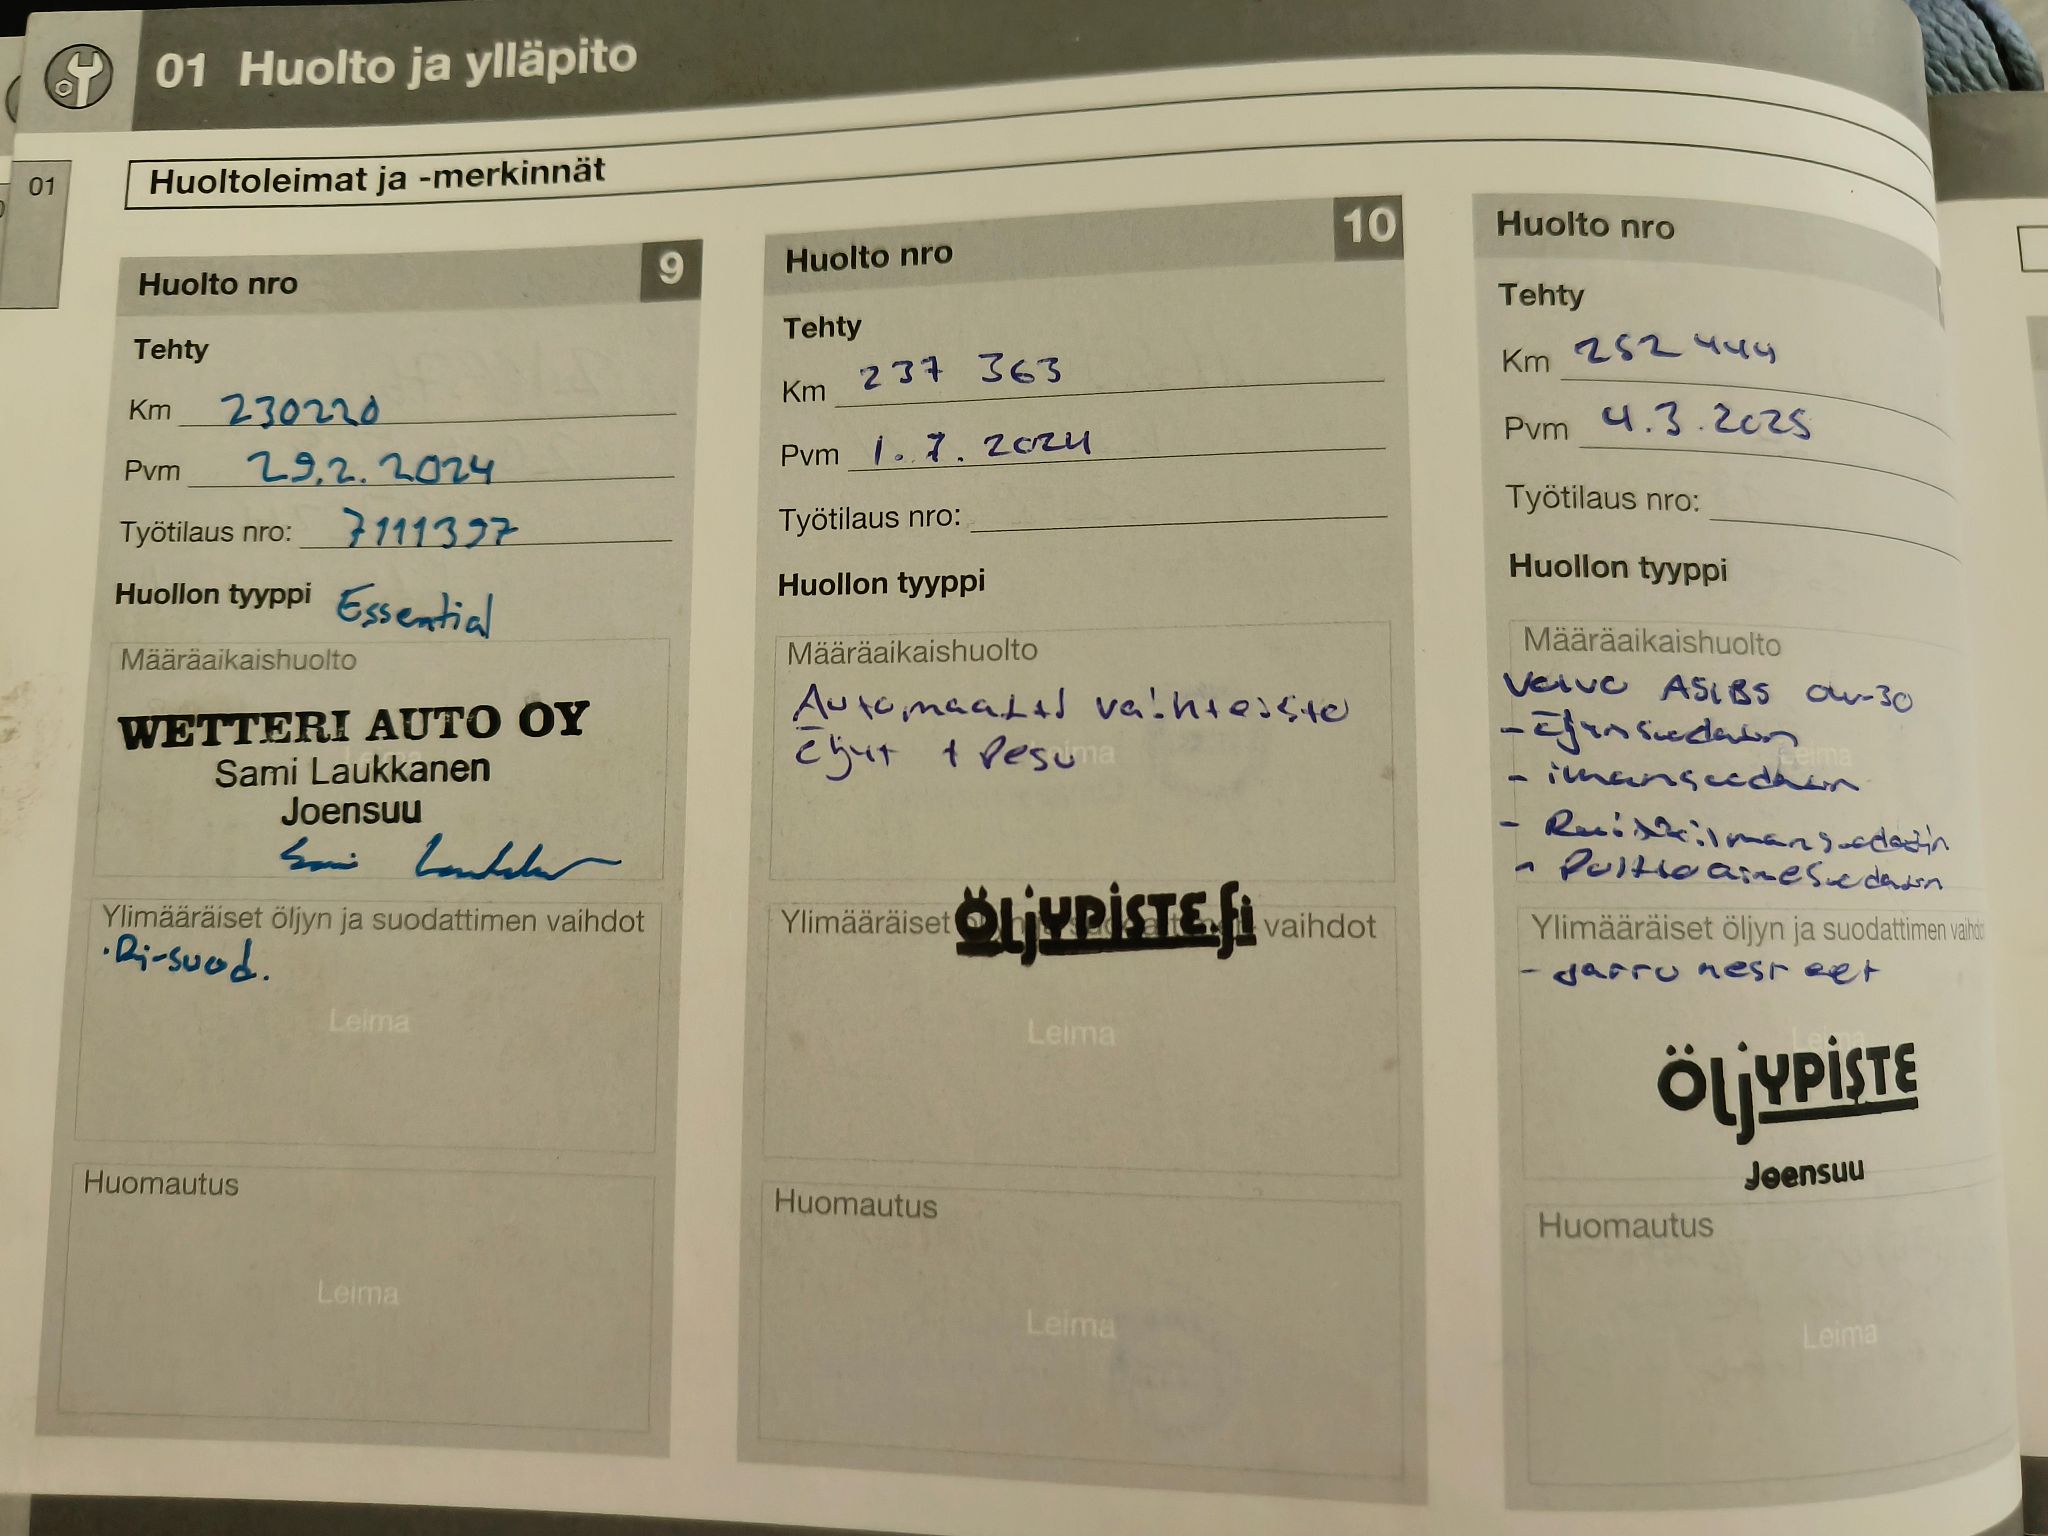 01 Huolto ja ylläpito
01
Huoltoleimat ja -merkinnät
Huolto nro 9
Tehty
Km 230220
Pvm 29.2.2024
Työtilaus nro: 7111397
Huollon tyyppi Essential
Määräaikaishuolto
WETTERI AUTO OY
Sami Laukkanen
Joensuu
Sami Laukkanen
Ylimääräiset öljyn ja suodattimen vaihdot
·Ri-suod.
Leima
Huomautus
Leima
Huolto nro 10
Tehty
Km 237 363
Pvm 1.7.2024
Työtilaus nro:
Huollon tyyppi
Määräaikaishuolto
Automaatti vaihteisto
öljyt + Pesu
Ylimääräiset öljyn ja suodattimen vaihdot
ÖLJYPISTE.fi
Leima
Huomautus
Leima
Huolto nro
Tehty
Km 252 444
Pvm 4.3.2025
Työtilaus nro:
Huollon tyyppi
Määräaikaishuolto
0w-30
- öljynsuodatin
- ilmansuodatin
- Raitisilmansuodatin
- Polttoainesuodatin
Ylimääräiset öljyn ja suodattimen vaihdot
- Jarru nesteet
Leima
ÖLJYPISTE
Joensuu
Huomautus
Leima